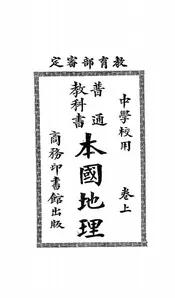 教育部審定
中學校用　卷上
普通教科書
本國地理
商務印書館出版